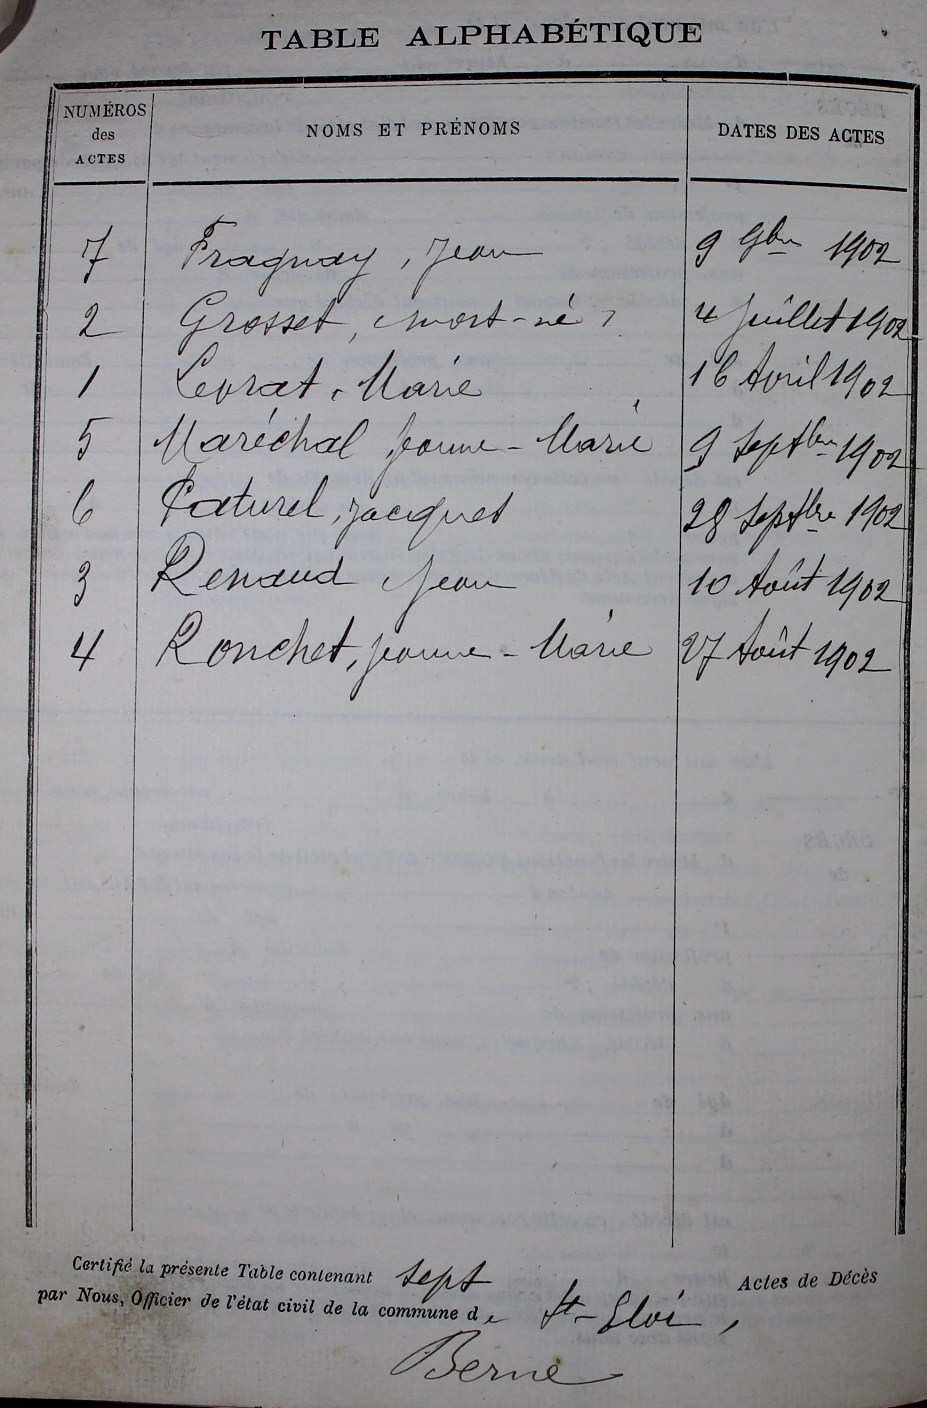 TABLE ALPHABÉTIQUE
NUMÉROS des ACTES NOMS ET PRÉNOMS DATES DES ACTES
7 Fragnay, Jean 9 9bre 1902
2 Grosset, mort-né, 4 Juillet 1902
1 Levrat, Marie 16 Avril 1902
5 Maréchal Jeanne-Marie 9 Septbre 1902
6 Paturel, Jacques 28 Septbre 1902
3 Renaud Jean 10 Août 1902
4 Ronchet, Jeanne-Marie 27 Août 1902
Certifié la présente Table contenant sept Actes de Décès
par Nous, Officier de l'état civil de la commune de St-Eloi,
Berne